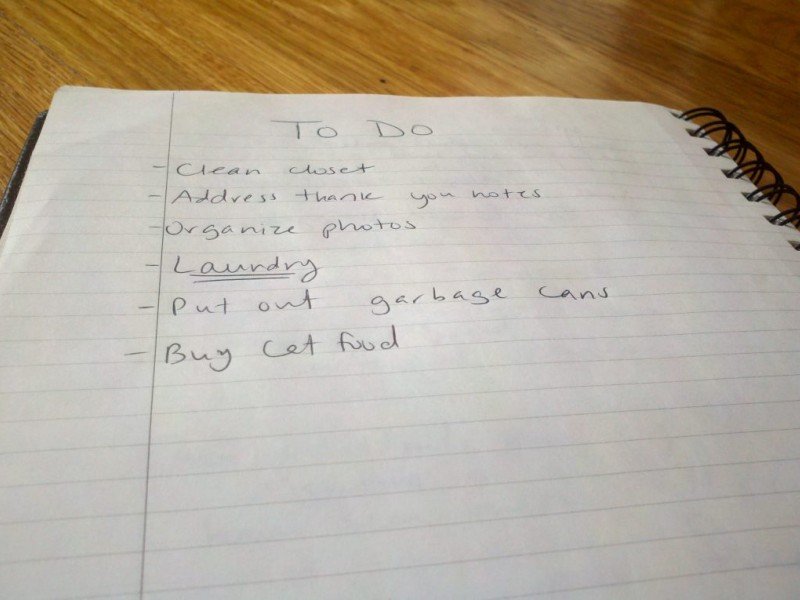 To Do
- Clean closet
- Address thank you notes
- Organize photos
- Laundry
- Put out garbage cans
- Buy cat food